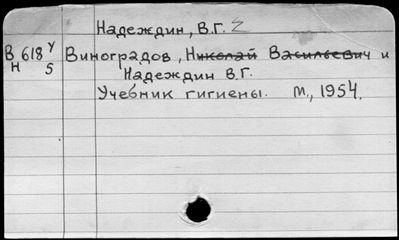 Надеждин, В.Г. Z
В 618 У Виноградов, Николай Васильевич и
Н 5 Надеждин В.Г.
Учебник гигиены. М., 1954.